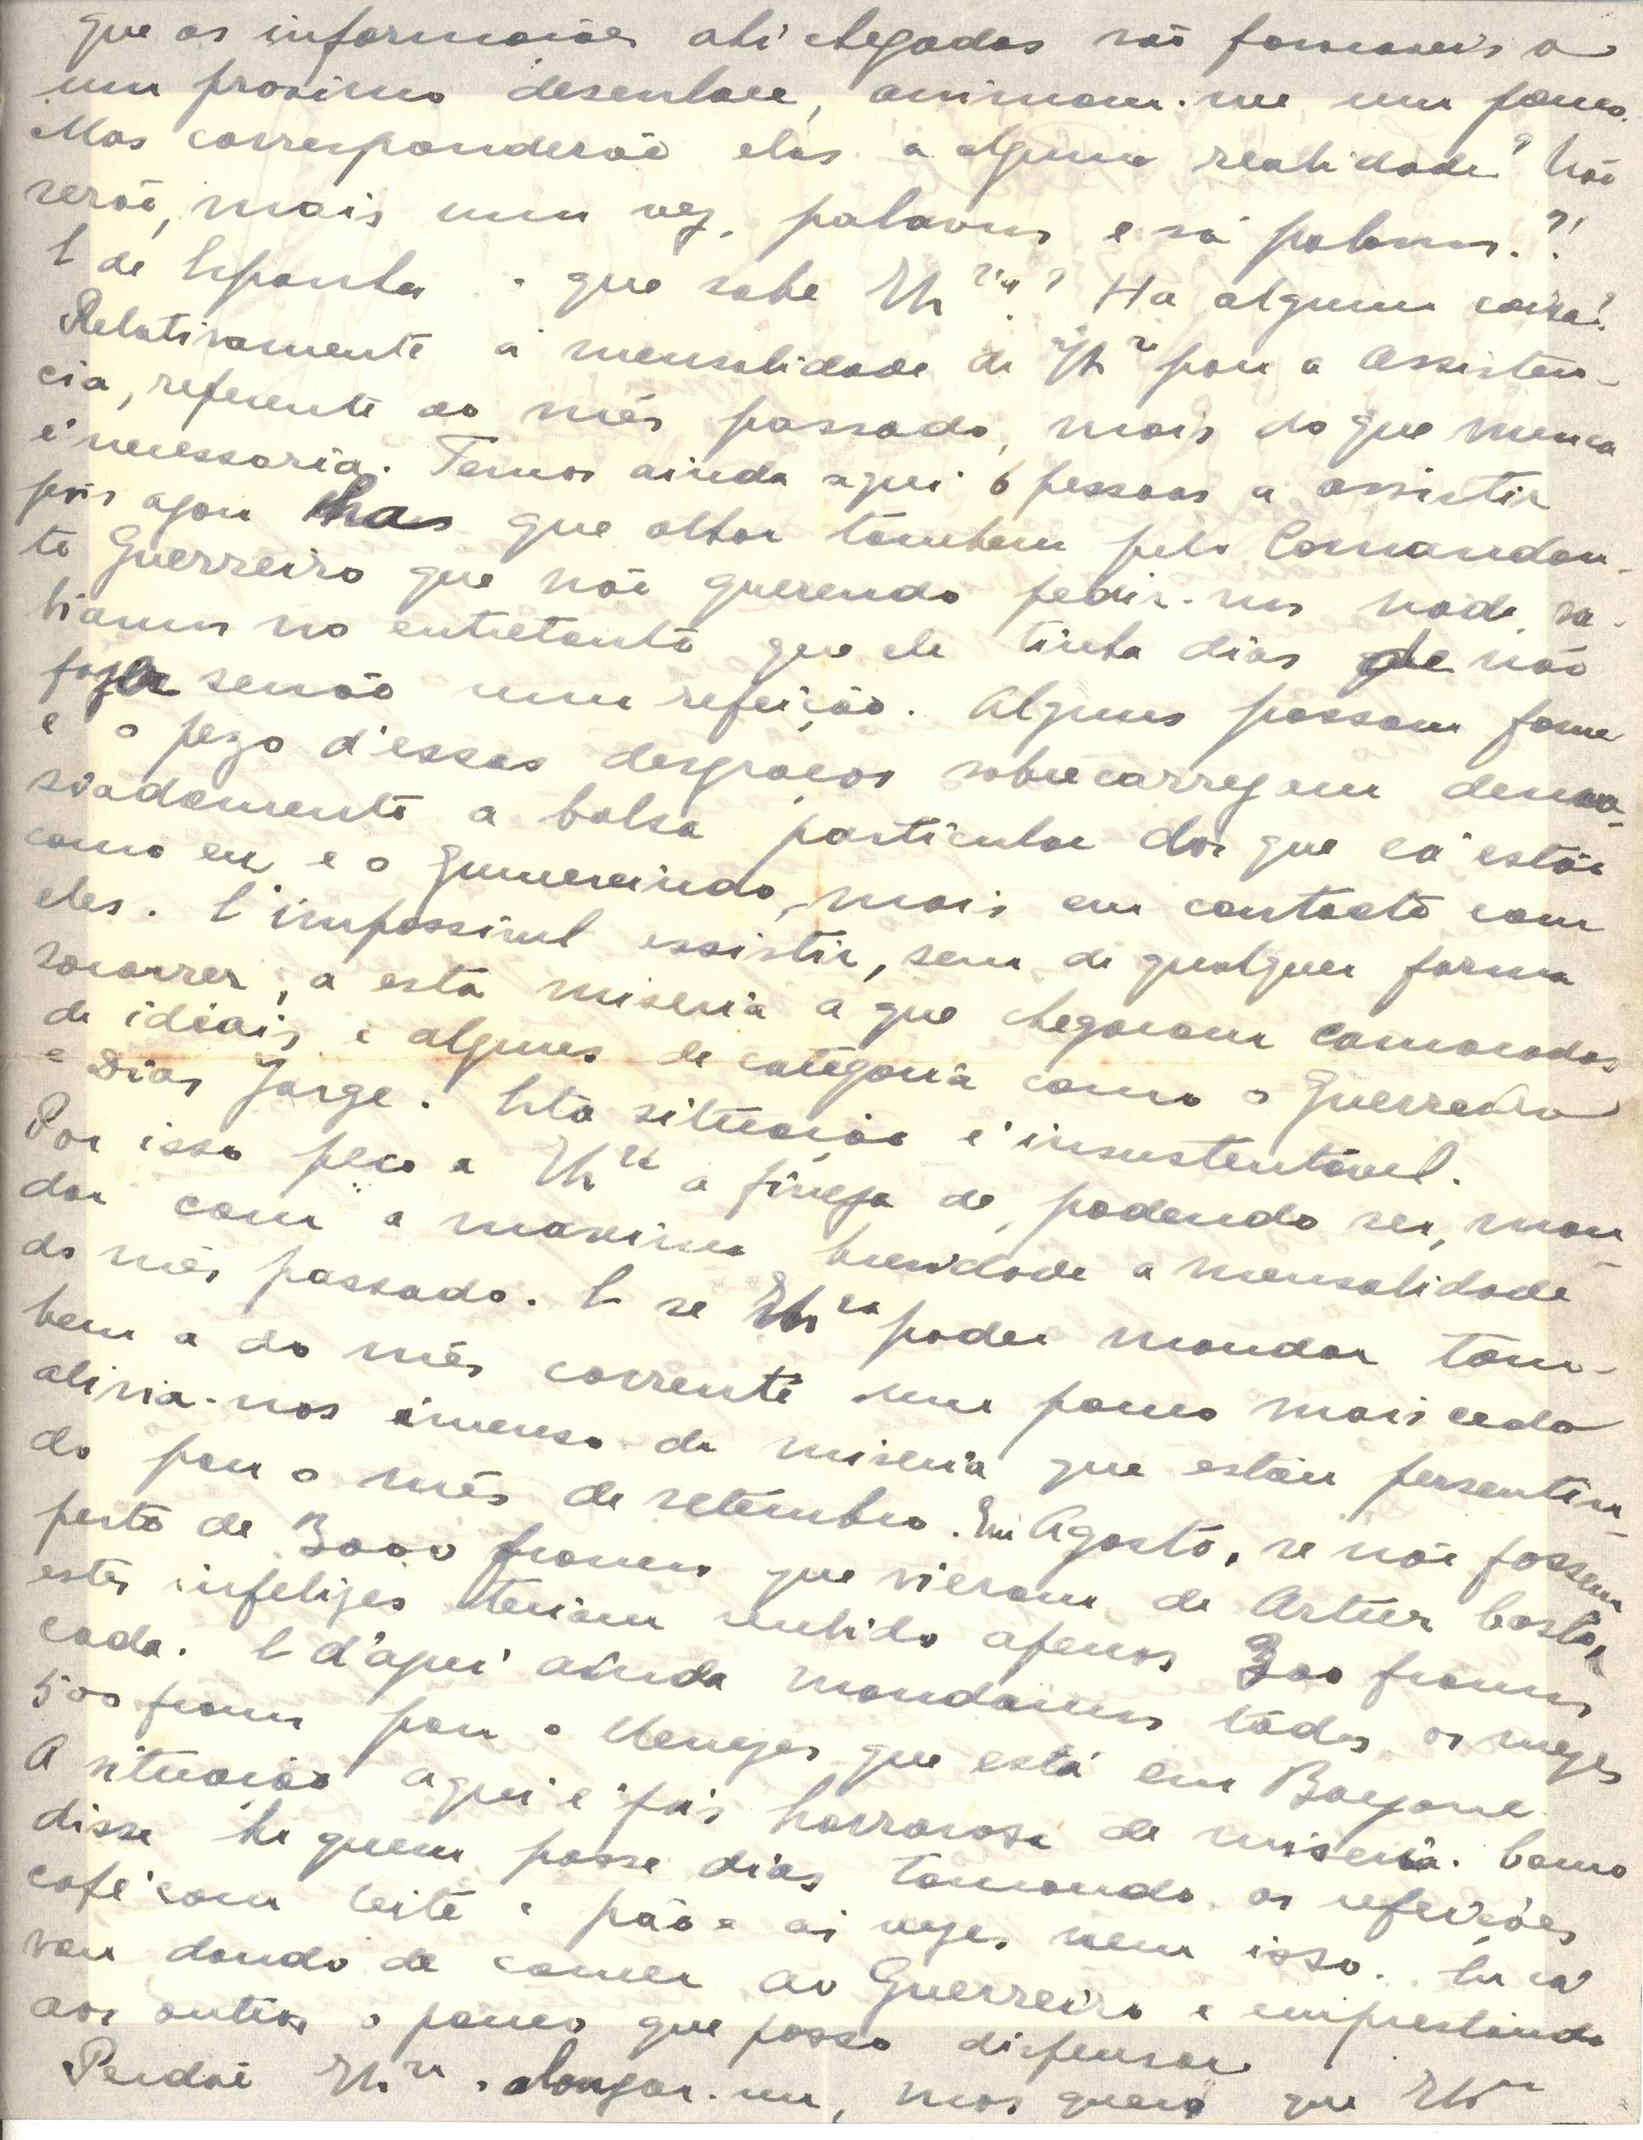 que as informações ahi chegadas são favoraveis a
um proximo desenlace, animam-me um pouco.
Mas corresponderão elas a alguma realidade? Não
serão, mais uma vez, palavras e só palavras.?!
E de Espanha o que sabe V. Ex.ª? Ha alguma coisa?
Relativamente á mensalidade de V. Ex.ª para a Assisten-
cia, referente ao mês passado, mais do que nunca
é necessaria. Temos ainda aqui 6 pessoas a assistir
pois agora ha que olhar tambem pelo Comandan-
te Guerreiro que não querendo pedir-nos nada, sa-
biamos no entretanto que ele tinha dias de não
fazer senão uma refeição. Alguns passam fome
e o pezo d'essas desgraças sobrecarregam dema-
siadamente a bolsa particular dos que cá estão
como eu e o Gumercindo, mais em contacto com
eles. E' impossivel assistir, sem de qualquer forma
socorrer, a esta miseria a que chegaram camaradas
de ideiais e alguns de categoria como o Guerreiro
e Dias Jorge. Esta situação é insustentável.
Por isso peço a V. Ex.ª a fineza de, podendo ser, man-
dar com a maxima brevidade a mensalidade
do mês passado. E se V. Ex.ª poder mandar tam-
bem a do mês corrente um pouco mais cedo
alivia-nos imenso da miseria que estou persentin-
do para o mês de setembro. Em Agosto, se não fossem
perto de 3000 francos que vieram de Artur Costa,
estes infelizes teriam recebido apenas 300 francos
cada. E d'aqui ainda mandamos todos os mezes
500 francos para o Menezes que está em Bayonne
A situação aqui é pois horrorosa de miseria. Como
disse ha quem passe dias tomando as refeições
café com leite e pão e ás vezes, nem isso. Eu cá
vou dando de comer ao Guerreiro e emprestando
aos outros o pouco que posso dispensar
Perdôe V. Ex.ª alongar-me, mas quero que V. Ex.ª